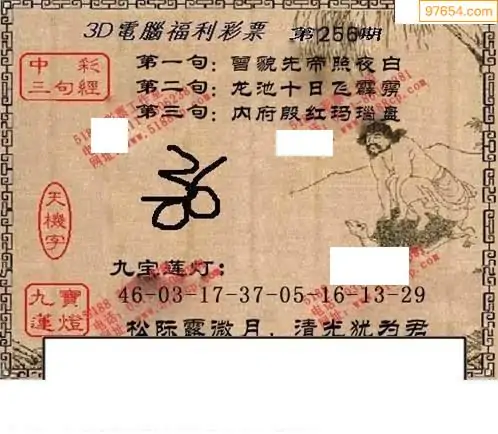 97654.com
3D電腦福利彩票 第256期
中彩
三句經
第一句：曾貌先帝照夜白
第二句：龙池十日飞霹雳
第三句：内府殷红玛瑙盘
天機字
九宝莲灯：
九寶
蓮燈
46-03-17-37-05-16-13-29
松际露微月，清光犹为君